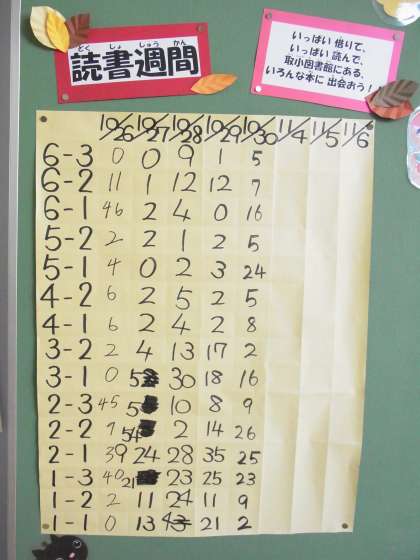 読書週間
どく しょ しゅう かん
いっぱい 借りて、
いっぱい 読んで、
取小図書館にある、
いろんな本に 出会おう！
10/26 10/27 10/28 10/29 10/30 11/4 11/5 11/6
6-3 0 0 9 1 5
6-2 11 1 12 12 7
6-1 46 2 4 0 16
5-2 2 2 1 2 5
5-1 4 0 2 3 24
4-2 6 2 5 2 5
4-1 6 2 4 2 8
3-2 2 4 13 17 2
3-1 0 5 30 18 16
2-3 45 5 10 8 9
2-2 7 54 2 14 26
2-1 39 24 28 35 25
1-3 40 21 23 25 23
1-2 2 11 24 11 9
1-1 0 13 43 21 2